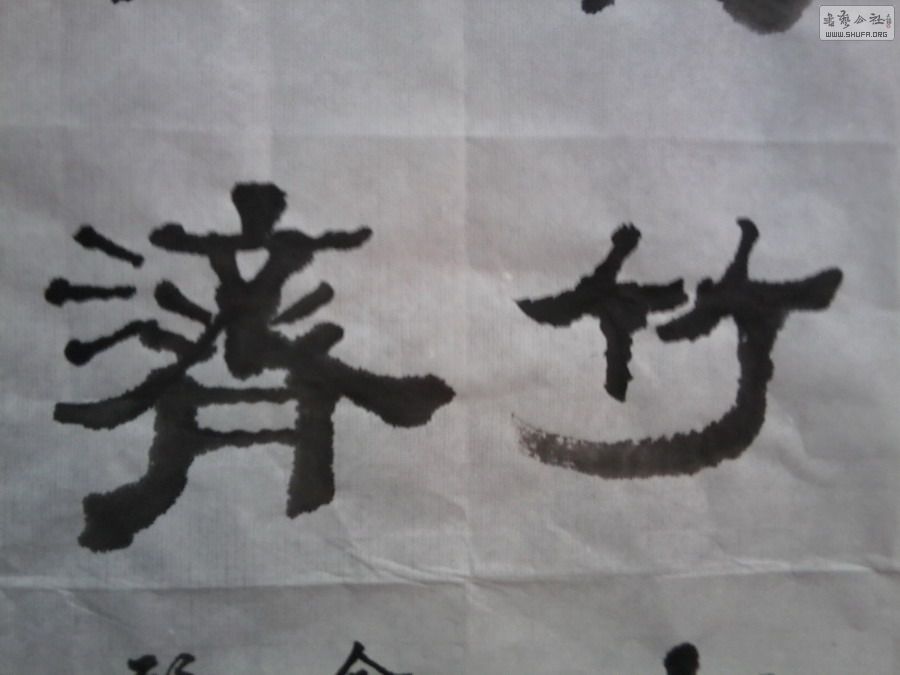 竹
濟
書藝公社
WWW.SHUFA.ORG